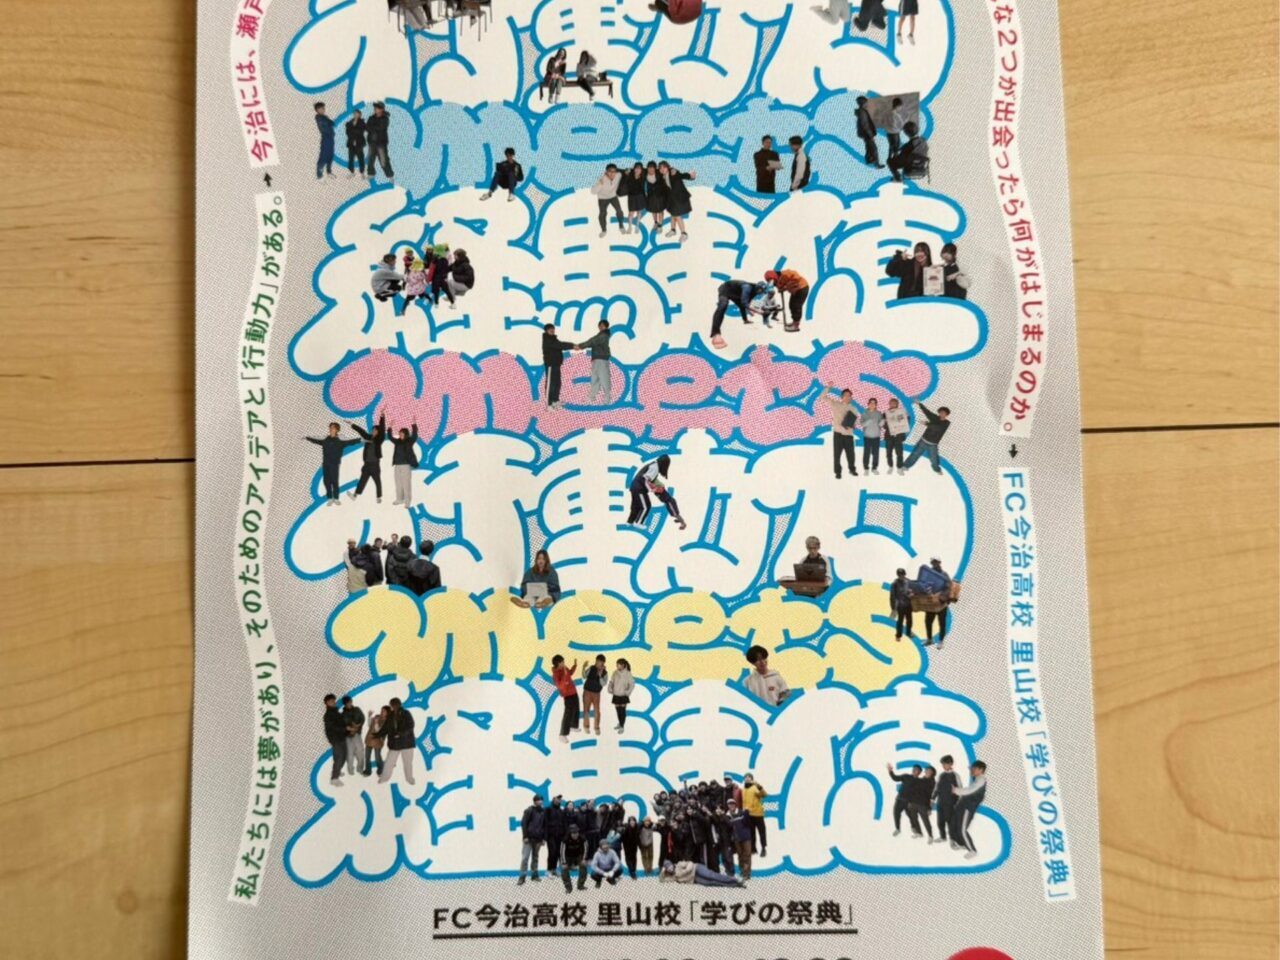 行動力
meets
経験値
meets
行動力
meets
経験値
今治には、瀬戸
私たちには夢があり、そのためのアイデアと「行動力」がある。
な2つが出会ったら何がはじまるのか。
FC今治高校 里山校「学びの祭典」
FC今治高校 里山校「学びの祭典」